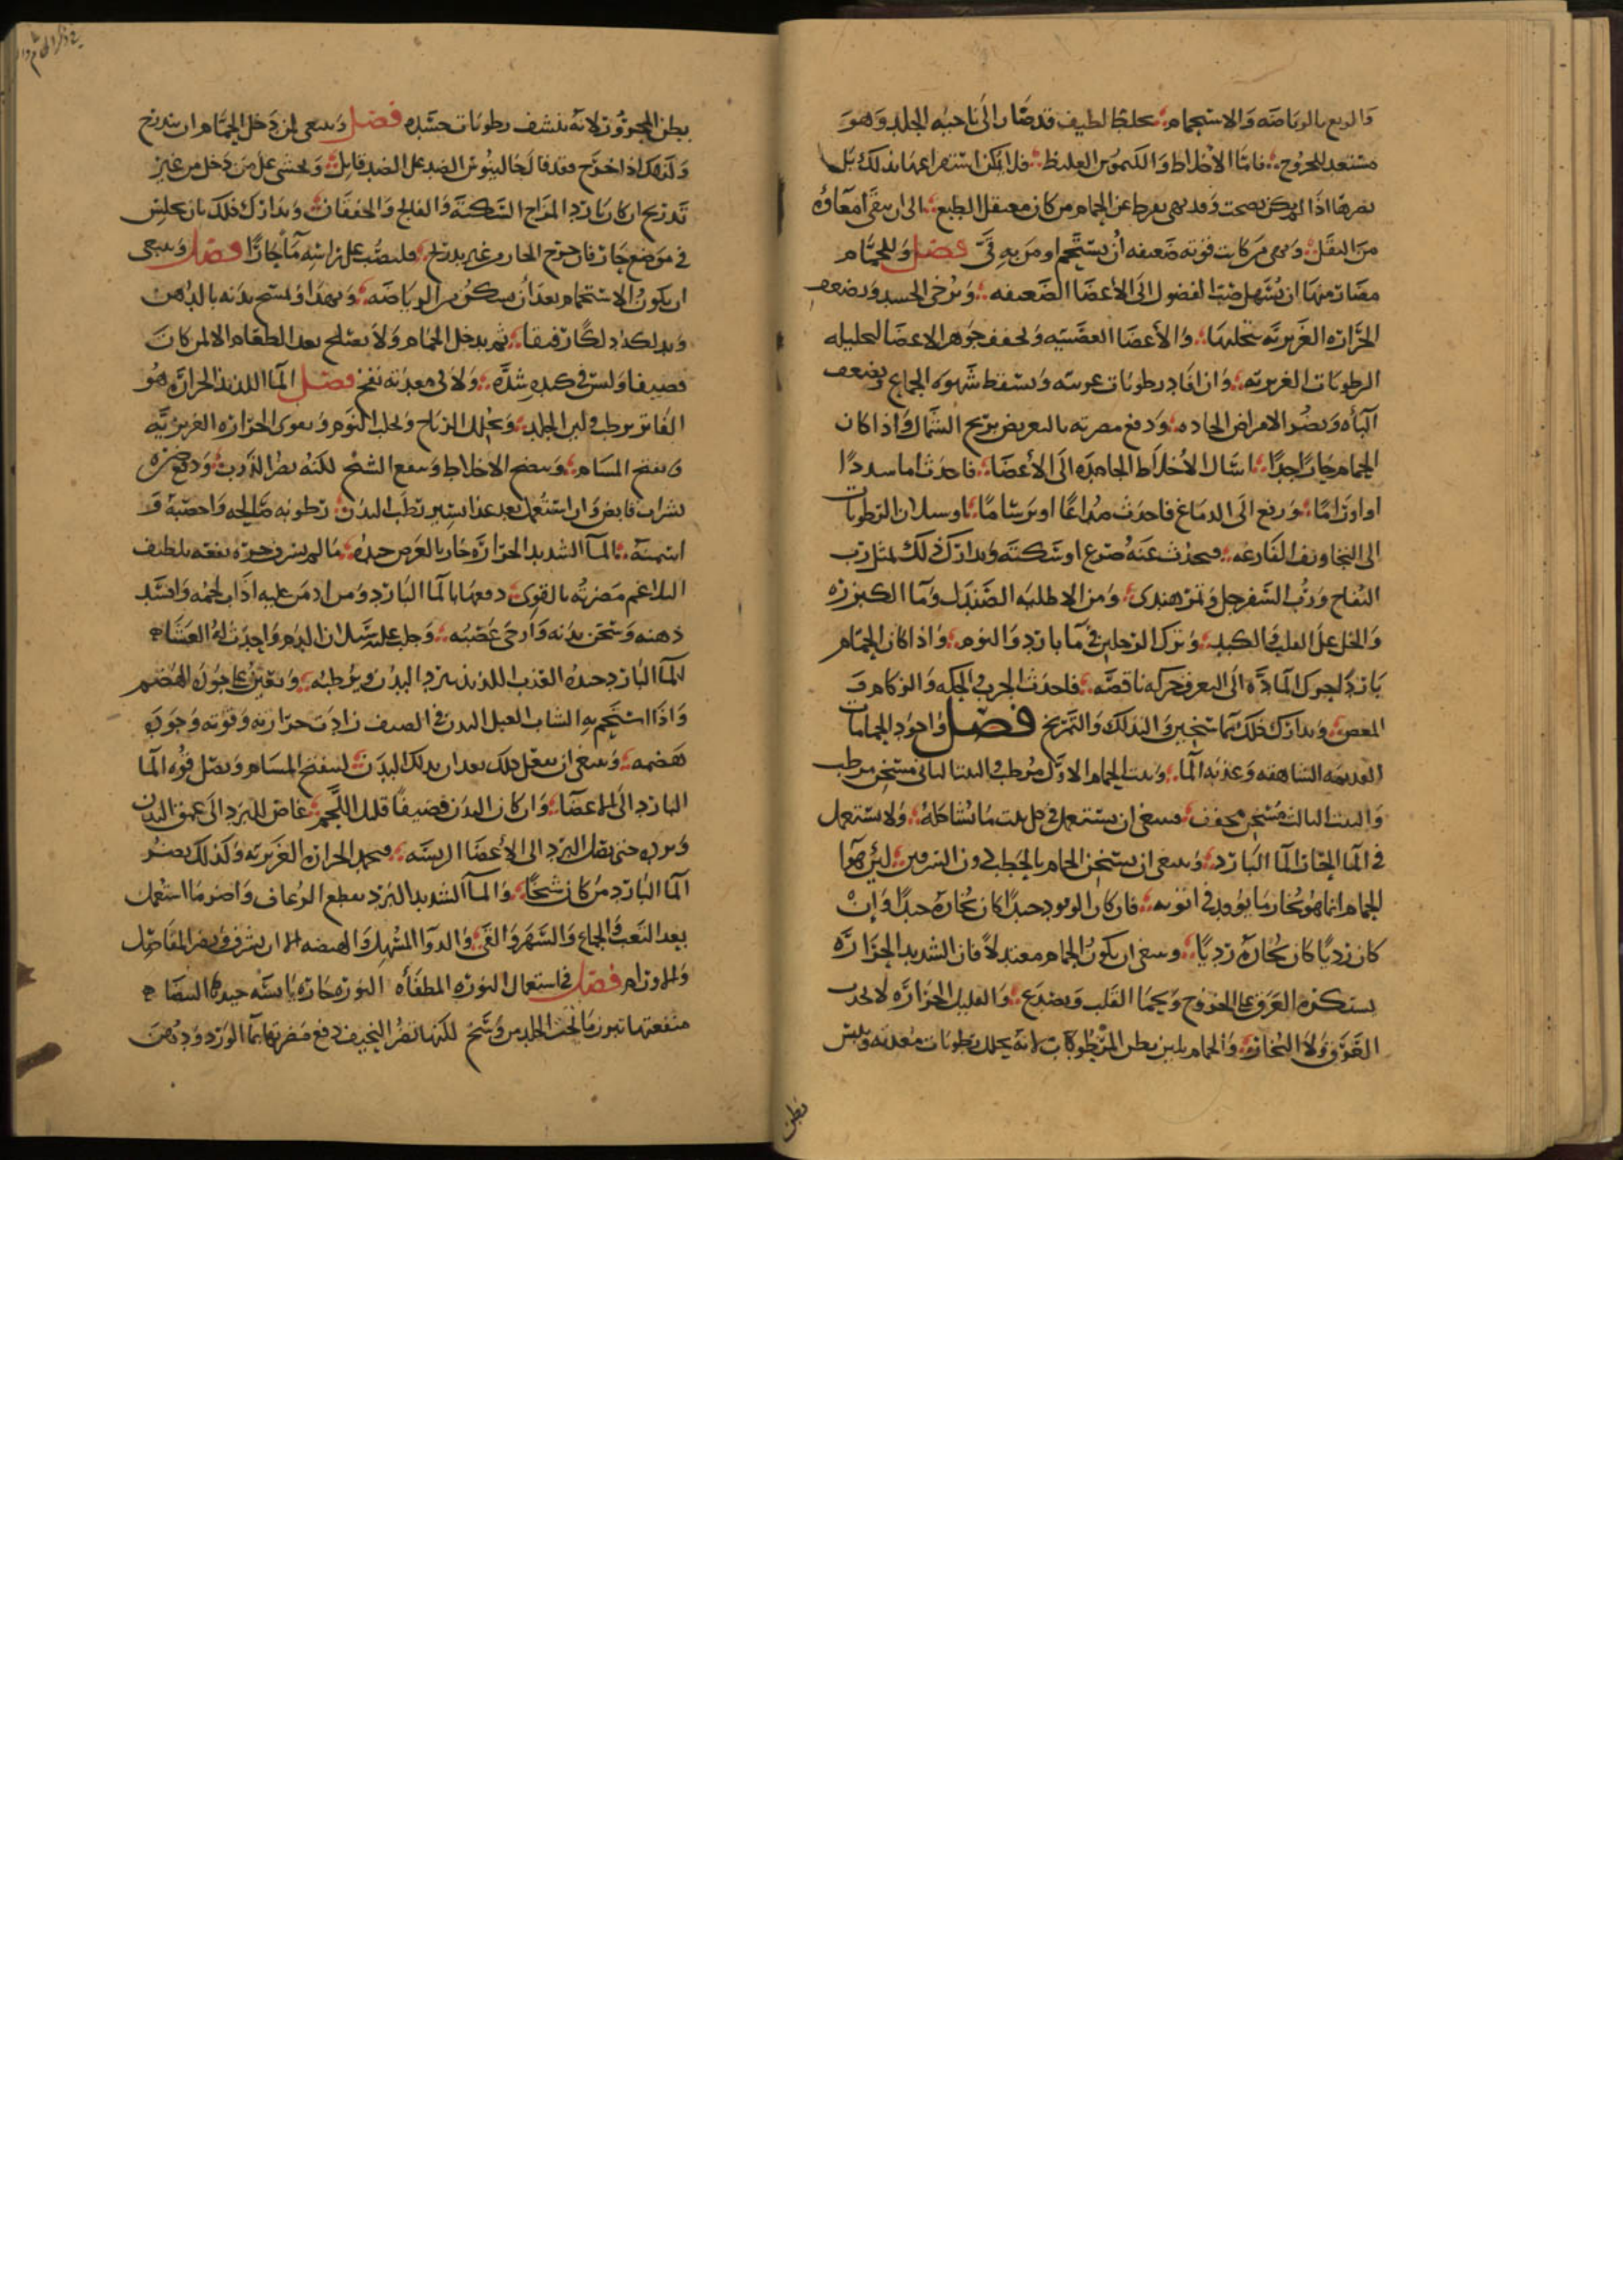 والربع بالرياضه والاستحمام محلطا لطيف قد صار الى ناحيه الجلد وهو
مستعد للخروج فاما الاخلاط والكيموس الغليظ فلا يمكن استفراغهما بذلك بل
اذا لم يكن نضجت وقد نهى بقراط عن الحمام من كان معتقل الطبع الى ان ينقى امعاؤه
من الثفل ونهى من كانت قوته ضعيفه أن يستحم او من به قي فصل وللحمام
مضار منها ان يسهل صب الفضول الى الأعضا الضعيفه ويرخى الجسد ويضعف
الحراره الغريزيه بتحليلها والأعضا العصبيه ويجفف جوهر الاعضا لتحليله
الرطوبات الغريزيه وان افاد رطوبات غريبه ويسقط شهوه الجماع ويضعف
الباه ويضر الامراض الحاده ودفع مضرته بالتعريض بريح الشمال واذا كان
الحمام حارا جدا اسال الأخلاط الجامده الى الأعضا فاحدث اما سددا
او اوراما ورفع الى الدماغ فاحدث صداعا او برساما او سيلان الرطوبات
الى التجاويف الفارغه فيحدث عنه صرع او سكته ويدارك ذلك بمثل رب
التفاح ورب السفرجل وتمر هندى ومن الاطليه الصندل وما الكزبره
والخل على القلب والكبد وترك الرجلين في ما بارد والنوم واذا كان الحمام
باردا لحرك الماده الى التعرق حركه ناقصه فاحدث الجرب والحكه والزكام و
المغص ويدارك ذلك بما يسخن والدلك والتمريخ فصل واجود الحمامات
القديمه الشاهقه وعذبه الما وبيت الحمام الاول مرطب والبيت الثانى مسخن مرطب
والبيت الثالث مسخن مجفف فينبغى ان يستعمل في كل بيت ما شاكله ولا يستعمل
في الما الحار الما البارد وينبغى ان يسخن الحمام بالحطب دون السرقين لئن هوا
الحمام انما هو بخار ما يوقد في اتونه فان كان الوقود جيدا كان بخاره جيدا وإن
كان رديا كان بخاره رديا وينبغى ان يكون الحمام معتدلا فان الشديد الحراره
يستكره العرق على الخروج ويحما القلب ويصدع والقليل الحراره لا يجذب
العرق ولا البخار والحمام يلين بطن المرطوب لانه يحلل رطوبات معدته ويلبس
بطن
بطن المحرور لانه ينشف رطوبات جسده فصل وينبغى لمن دخل الحمام ان يتدرج
وكذلك اذا خرج فقد قال جالينوس الضد على الضد قاتل ويخشى على من دخل من غير
تدريج ان كان بارد المزاج السكته والفالج والخفقان ويدارك ذلك بان يجلس
في موضع حار فان خرج الحار من غير تدريج فليصب على راسه ما حارا فصل وينبغى
ان يكون الاستحمام بعد أن يسكن من الرياضه ويهدا ويمسح بدنه بالدهن
ويدلك دلكا رفيقا ثم يدخل الحمام ولا يصلح بعد الطعام الا لمن كان
قضيفا وليس في كبده شده ولا في معدته نفخ فصل الما اللذيذ الحراره هو
الفاتر يرطب ويلين الجلد ويحلل الرياح ويجلب النوم ويقوى الحراره الغريزيه
ويفتح المسام وينضج الاخلاط وينفع الشيخ لكنه يضر الذرب ودفع ضرره
بشراب قابض وان استعمل بعد غذا يسير رطب البدن رطوبه صالحه واخصبه و
اسمنه الما الشديد الحراره حار بالعرض جيده ما لم يسرف حره نفعه تلطيف
البلاغم مضرته بالقوى دفعها بالما البارد ومن ادمن عليه اذاب لحمه وافسد
ذهنه وسخن بدنه وارخى عصبه وجلب عليه سيلان الدم واحدث له الغشاه
الما البارد جيده العذب اللذيذ يبرد البدن ويرطبه ويعين على جوده الهضم
واذا استحم به الشاب العبل البدن في الصيف زادت حرارته وقوته وجوده
هضمه وينبغى ان يفعل ذلك بعد ان يدلك البدن ليتفتح المسام ويصل قوه الما
البارد الى الاعضا وان كان البدن قضيفا قليل اللحم غاص البرد الى عمق البدن
وبرده حتى يصل البرد الى الأعضا الرييسه فيخمد الحراره الغريزيه وكذلك يضر
الما البارد من كان شيخا والما الشديد البرد يقطع الرعاف واضر ما استعمل
بعد التعب والجماع والسهر والقى والدوا المسهل والهيضه الا ان يسرف ويضر المفاصل
والاورام فصل في استعمال النوره المطفاه النوره حاره يابسه جيدها البيضاه
منفعتها تبرز ما تحت الجلد من وسخ لكنها تضر النحيف دفع مضرتها بما الورد ودهن